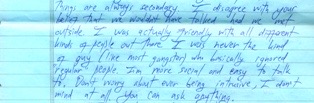 Things are always secondary. I disagree with your
belief that we wouldn't have talked had we met
outside. I was actually friendly with all different
kinds of people out there. I was never the kind
of guy (like most gangsters) who basically ignored
"regular" people. I'm more social and easy to talk
to. Don't worry about ever being intrusive, I don't
mind at all. You can ask anything.